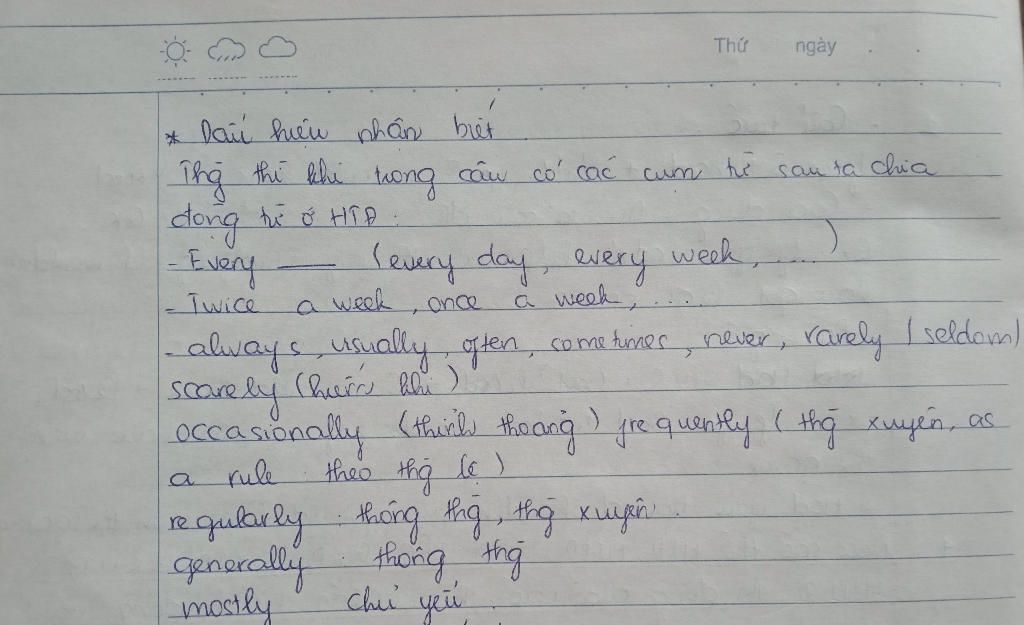 Thứ ngày . .
* Dấu hiệu nhận biết
Thg̀ thì khi trong câu có các cụm từ sau ta chia
động từ ở HTĐ :
- Every —— (every day, every week, .....)
- Twice a week, once a week, ....
- always, usually, often, sometimes, never, rarely (seldom)
scarely (hiếm khi)
occasionally (thỉnh thoảng) frequently (thg̀ xuyên, as
a rule : theo thg̀ lệ)
regularly : thông thg̀, thg̀ xuyên.
generally : thông thg̀
mostly chủ yếu